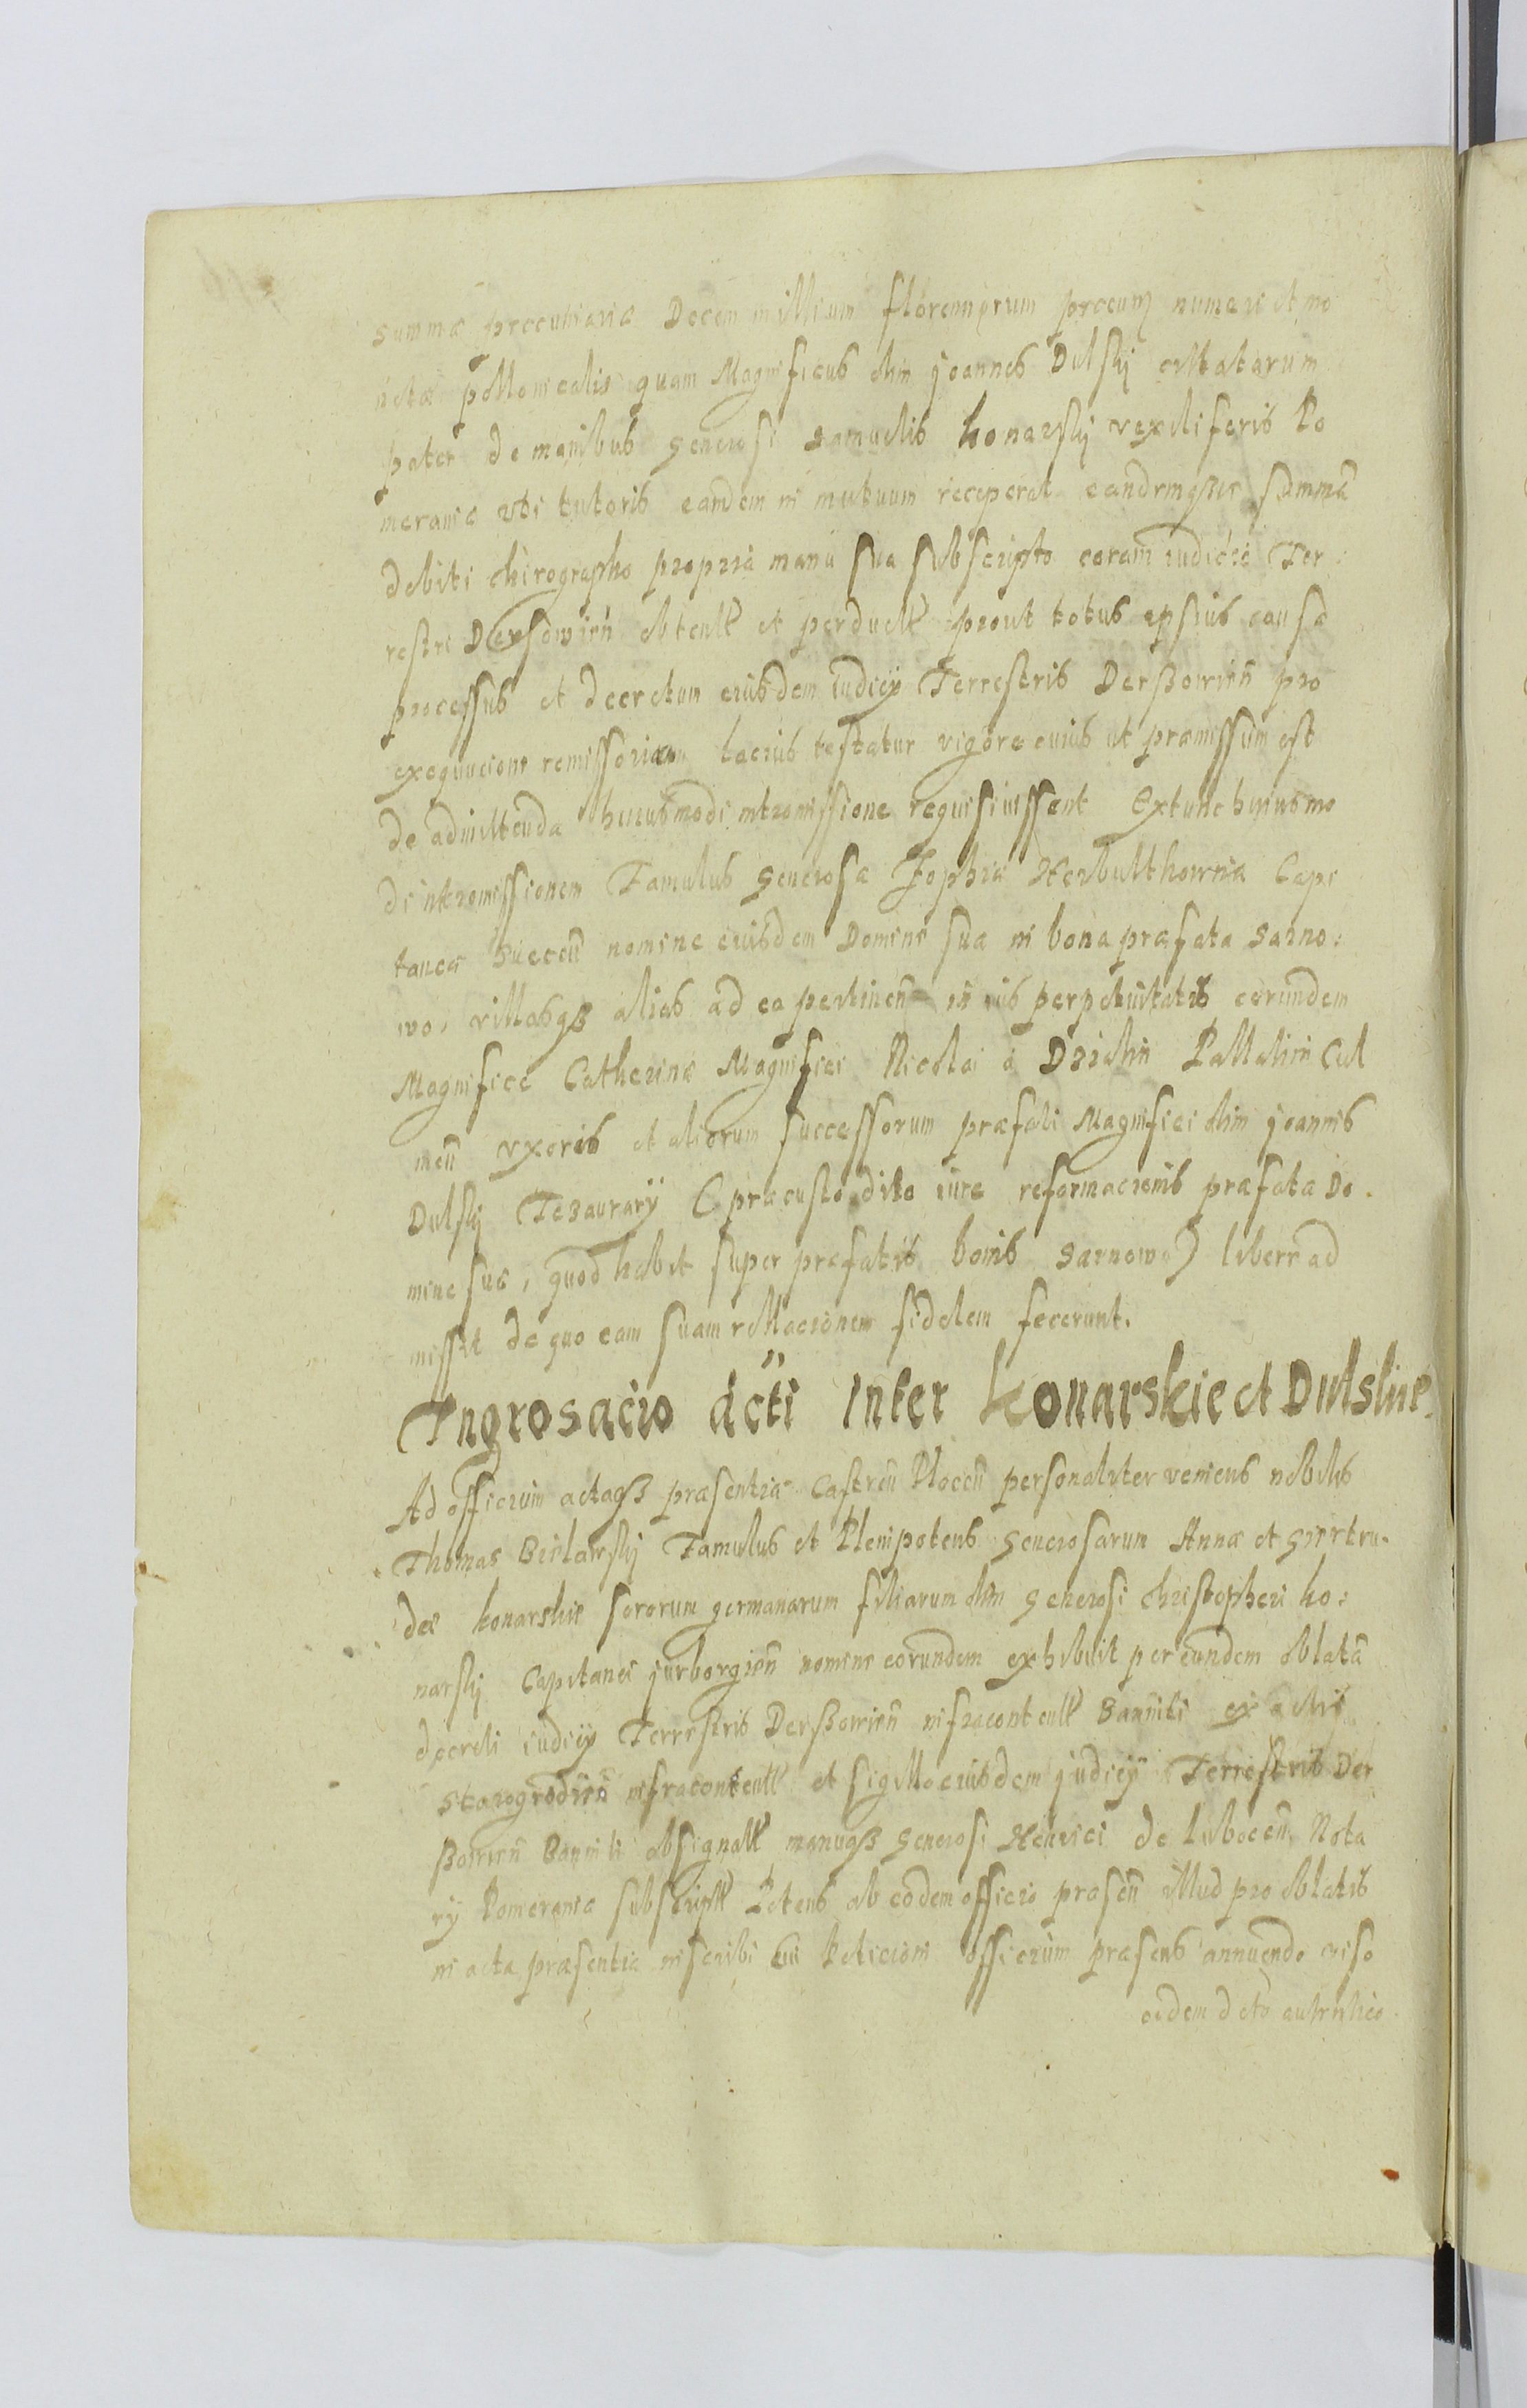 summæ præcuniariæ Decem millium florennorum præcunȝ numeri et mo
netæ pollonicalis quam Magnificus olim joannes Dulskj citatarum
pater de manibus generosi samuelis konarskj vexiliferis Po
meraniæ uti tutoris eandem in mutuum receperat eandemqȝue summā
debiti chirographo propria manu sua subscripto coram iudicio Ter:
restri Dersowieñ obtentt et perductt prout totus ipsius causæ
processus et decretum eiusdem iudicÿ Terrestris Derßowieñ pro
exequucione remissoriam lacius testatur vigore cuius ut præmissum est
de admittenda huiusmodi intromissione requisiuissent Extunc huiusmo
di intromissionem Famulus generosæ Zophiæ Herbulthownia Capi
taneæ Sueceñ nomine eiusdem Domine suæ in bona præfata sarno:
wo, villasqß alias ad ea pertineñ in ius perpetuitatis eorundem
Magnificæ Catherinæ Magnifici Nicolai a Dzialin Pallatini Cul
meñ uxoris et aliorum successorum præfati Magnifici olim joannis
Dulskj Tezaurarÿ (præcustodito iure reformacionis præfatæ Do.
mine suæ, quod habet super præfatis bonis sarnowo) libere ad
missit de quo eam suam rellacionem fidelem fecerunt.
Ingrosacio dcti inter konarskie et Dulskie.
Ad officium actaqß præsentia Castreñ Ploceñ personaliter veniens nobilis
Thomas Bielawskj Famulus et Plenipotens generosarum Annæ et giertru.
dæ konarskie sororum germanarum filiarum olim generosi christopheri ko:
narskj Capitanei jurborgieñ nomine eorundem exhibuit per eundem oblatā
decreti iudicÿ Terrestris Derßowieñ infracontentt Banniti ex actis
starogrodieñ infracontentt et sigillo eiusdem judicÿ Terrestris Der
ßowieñ Banniti obsignatt manuqß generosi Henrici de luboceñ Nota
rÿ Pomeraniæ subscriptt Petens ab eodem officio præseñ illud pro oblatis
in acta præsentia inscribi cui Peticioni officium præsens annuendo viso
eodem dcto autentico